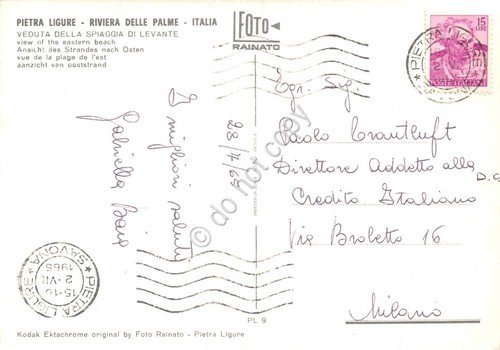 PIETRA LIGURE - RIVIERA DELLE PALME - ITALIA
VEDUTA DELLA SPIAGGIA DI LEVANTE
view of the eastern beach
Ansicht des Strandes nach Osten
vue de la plage de l'est
aanzicht van ooststrand
FOTO
RAINATO
15
LIRE
POSTE ITALIANE
PIETRA LIGURE
28/7/65
I migliori saluti
Gabriella
Egr. Sig.
Paolo Crautluft
Direttore Addetto alla D.C.
Credito Italiano
Via Broletto 16
Milano
do not copy
* PIETRA LIGURE *
SAVONA
15-16
2-VII
1965
PL 9
Kodak Ektachrome original by Foto Rainato - Pietra Ligure